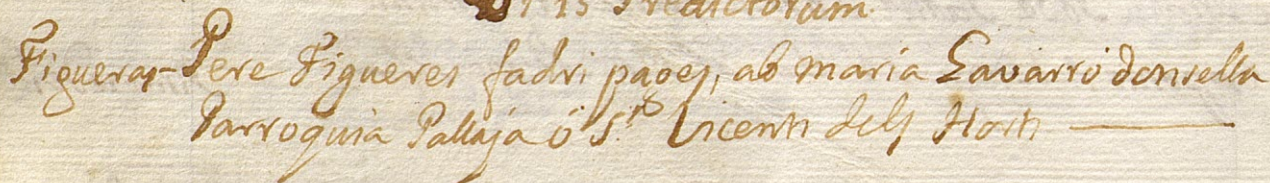 15 Predictorum
Figueras - Pere Figueres fadri pages, ab maria Gavarró donsella
Parroquia Pallaja ó St Vicents dels Horts